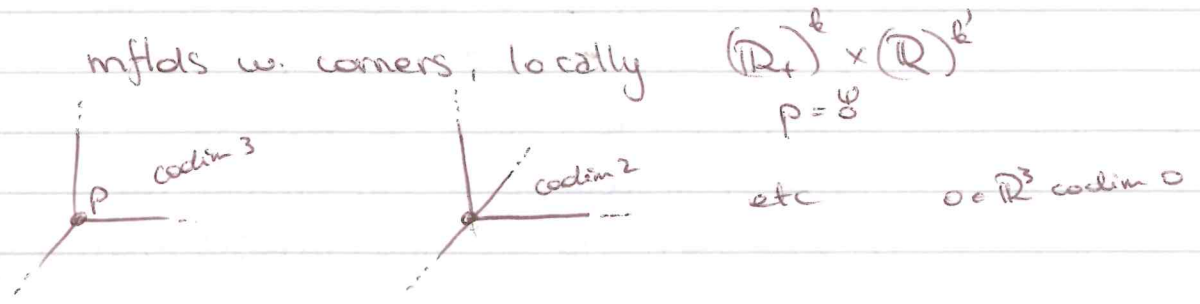 mflds w. corners, locally (ℝ₊)^k × (ℝ)^k'
p = 0
codim 3 codim 2 etc 0 ∈ ℝ³ codim 0
p